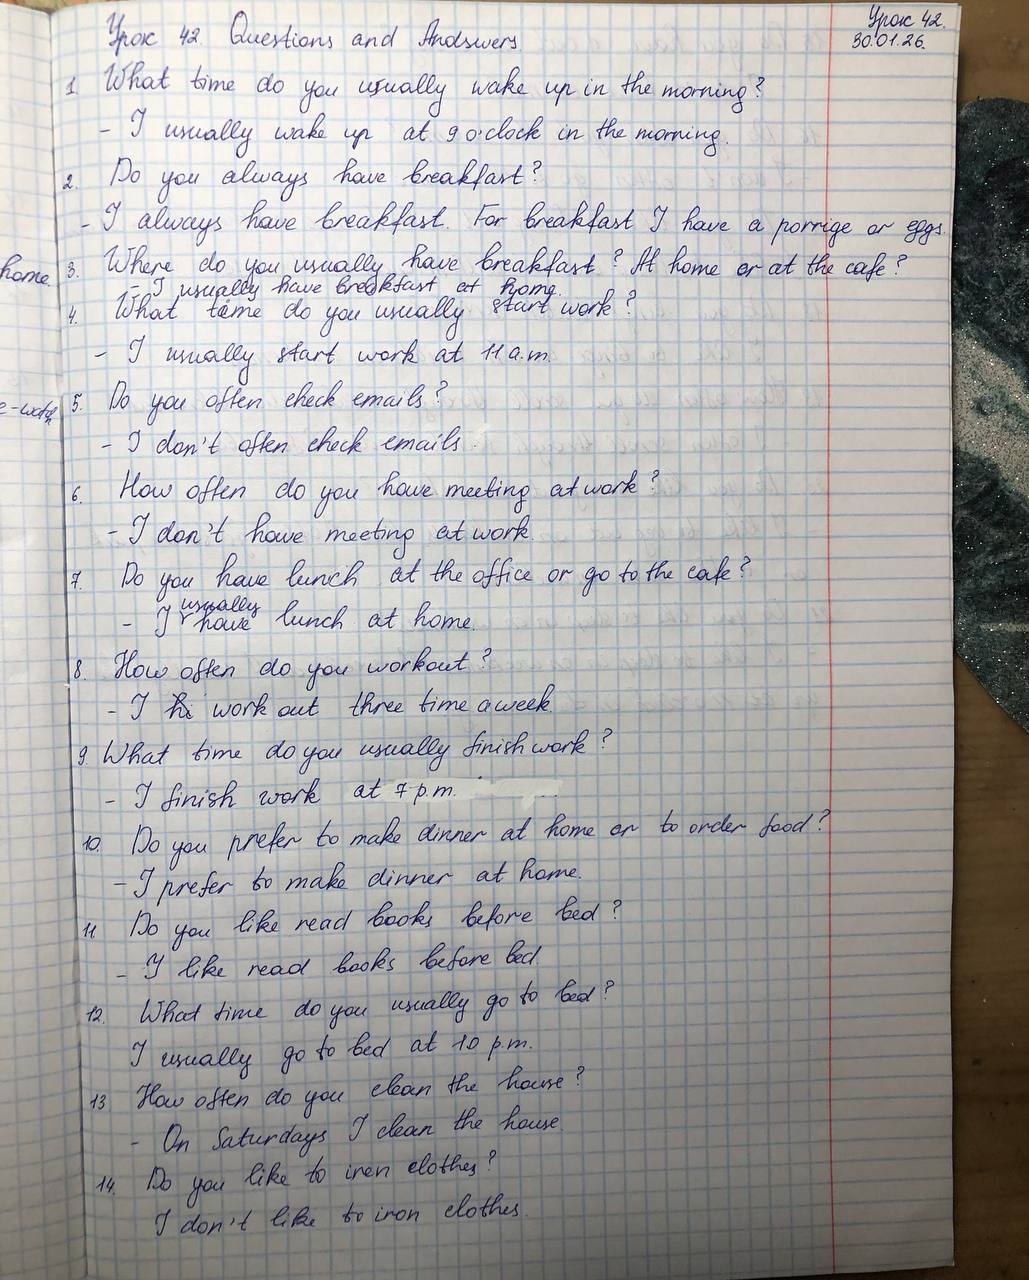 Урок 42.
30.01.26.
Урок 42. Questions and Andswers.
1. What time do you usually wake up in the morning?
- I usually wake up at 9 o'clock in the morning.
2. Do you always have breakfast?
- I always have breakfast. For breakfast I have a porrige or eggs.
home
3. Where do you usually have breakfast? At home or at the cafe?
- I usually have breakfast at home.
4. What time do you usually start work?
- I usually start work at 11 a.m.
5. Do you often check emails?
- I don't often check emails.
6. How often do you have meeting at work?
- I don't have meeting at work.
7. Do you have lunch at the office or go to the cafe?
- I usually have lunch at home.
8. How often do you workout?
- I work out three time a week.
9. What time do you usually finish work?
- I finish work at 7 p.m.
10. Do you prefer to make dinner at home or to order food?
- I prefer to make dinner at home.
11 Do you like read books before bed?
- I like read books before bed
12. What time do you usually go to bed?
I usually go to bed at 10 p.m.
13. How often do you clean the house?
- On Saturdays I clean the house.
14. Do you like to iron clothes?
I don't like to iron clothes.